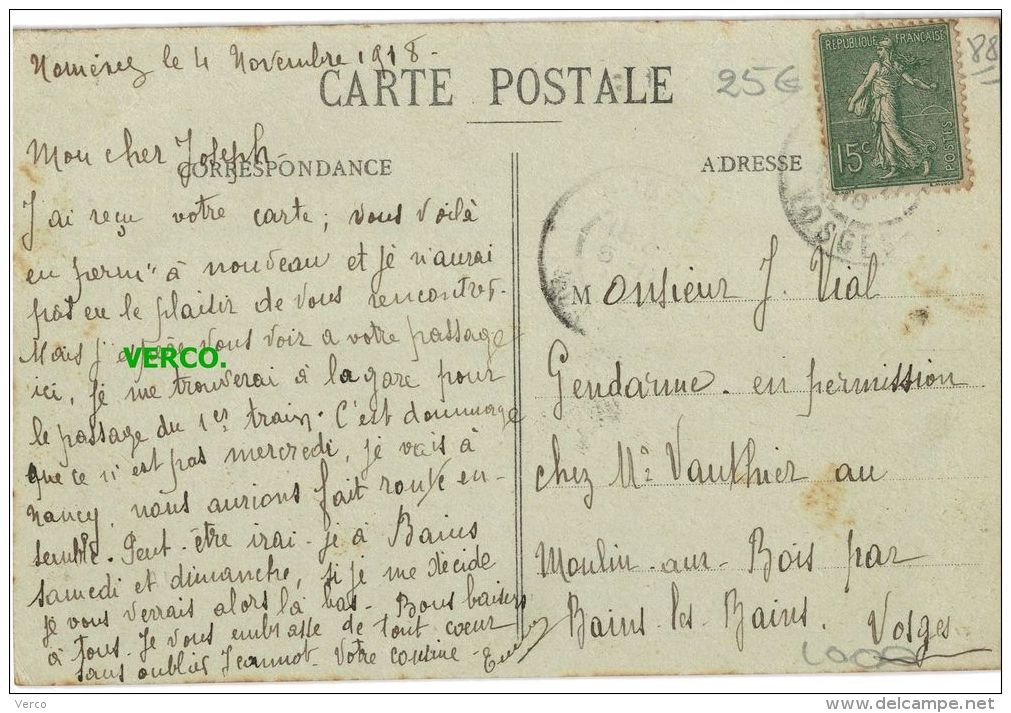 le 4 Novembre 1918-
CARTE POSTALE
25€
88
REPUBLIQUE FRANÇAISE
15c
POSTES
VOSGES
Mon cher Joseph-
CORRESPONDANCE
ADRESSE
J'ai reçu votre carte; vous voilà
en perm" à nouveau et je n'aurai
pas eu le plaisir de vous rencontrer.
Mais j'espère vous voir a votre passage
VERCO.
ici, je me trouverai à la gare pour
le passage du 1er train. C'est dommage
que ce n'est pas mercredi, je vais à
Nancy, nous aurions fait route en-
semble. Peut-être irai-je à Bains
samedi et dimanche, si je me décide
je vous verrais alors là bas- Bons baisers
à tous. Je vous embrasse de tout coeur
sans oublier Jeannot- Votre cousine-
Monsieur J. Vial
Gendarme. en permission
chez Mr Vauthier au
Moulin-aux-Bois par
Bains-les-Bains. Vosges
Verco
http://www.delcampe.net